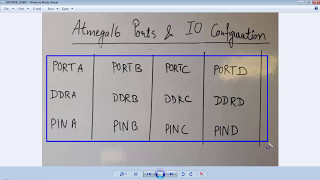 Atmega16 Ports & IO Configuration
PORTA PORTB PORTC PORTD
DDRA DDRB DDRC DDRD
PINA PINB PINC PIND